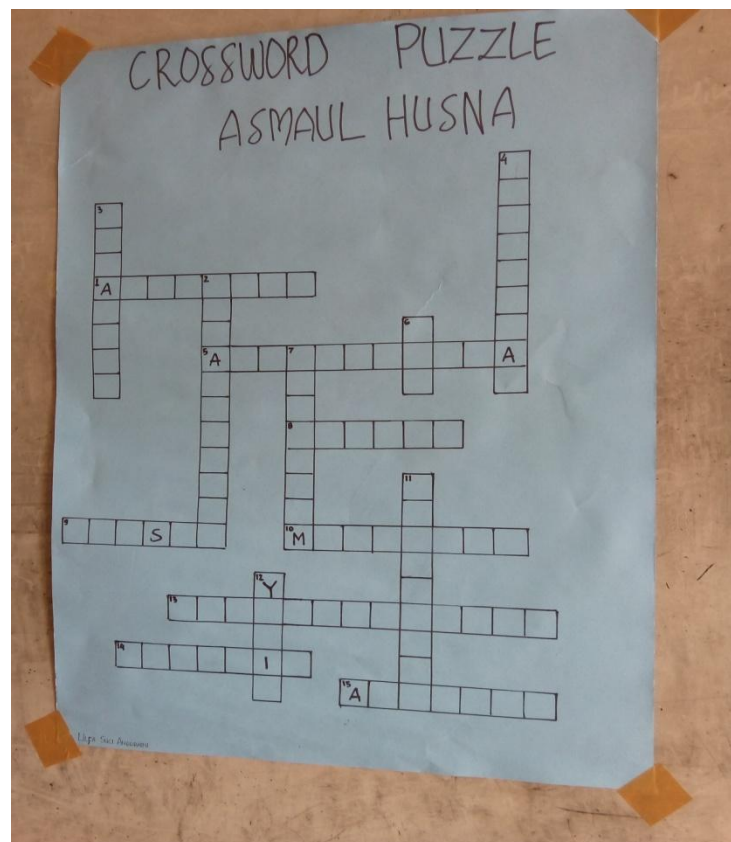 CROSSWORD PUZZLE
ASMAUL HUSNA
4
3
1 A 2
6
5 A 7 A
8
11
9 S 10 M
12 Y
13
14 I
15 A